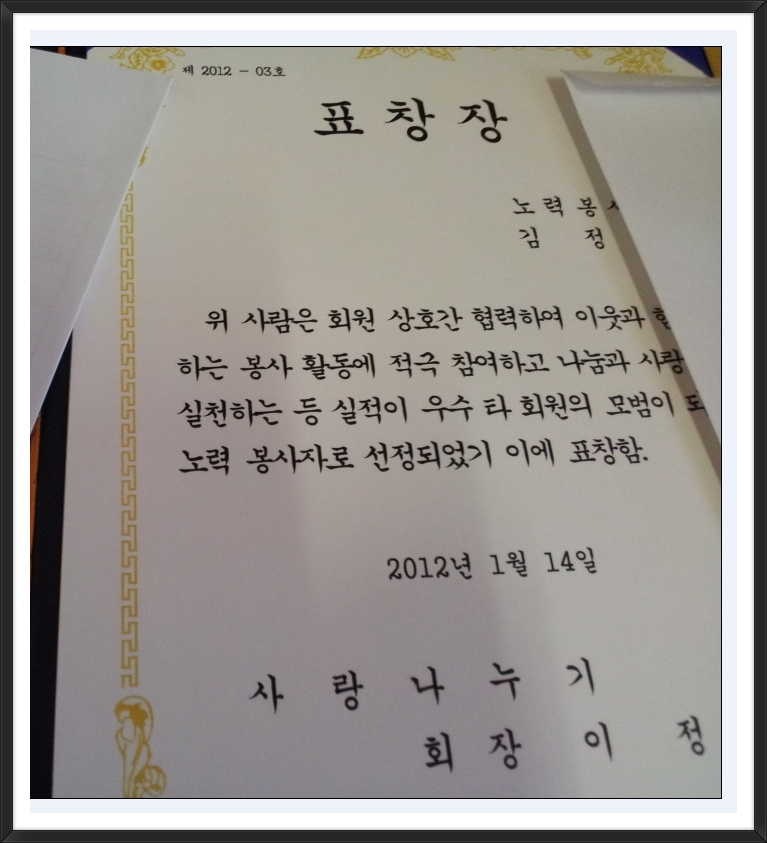 제 2012 - 03호
표 창 장
노 력 봉
김 정
위 사람은 회원 상호간 협력하여 이웃과
하는 봉사 활동에 적극 참여하고 나눔과 사랑
실천하는 등 실적이 우수 타 회원의 모범이
노력 봉사자로 선정되었기 이에 표창함.
2012년 1월 14일
사 랑 나 누 기
회 장 이 정